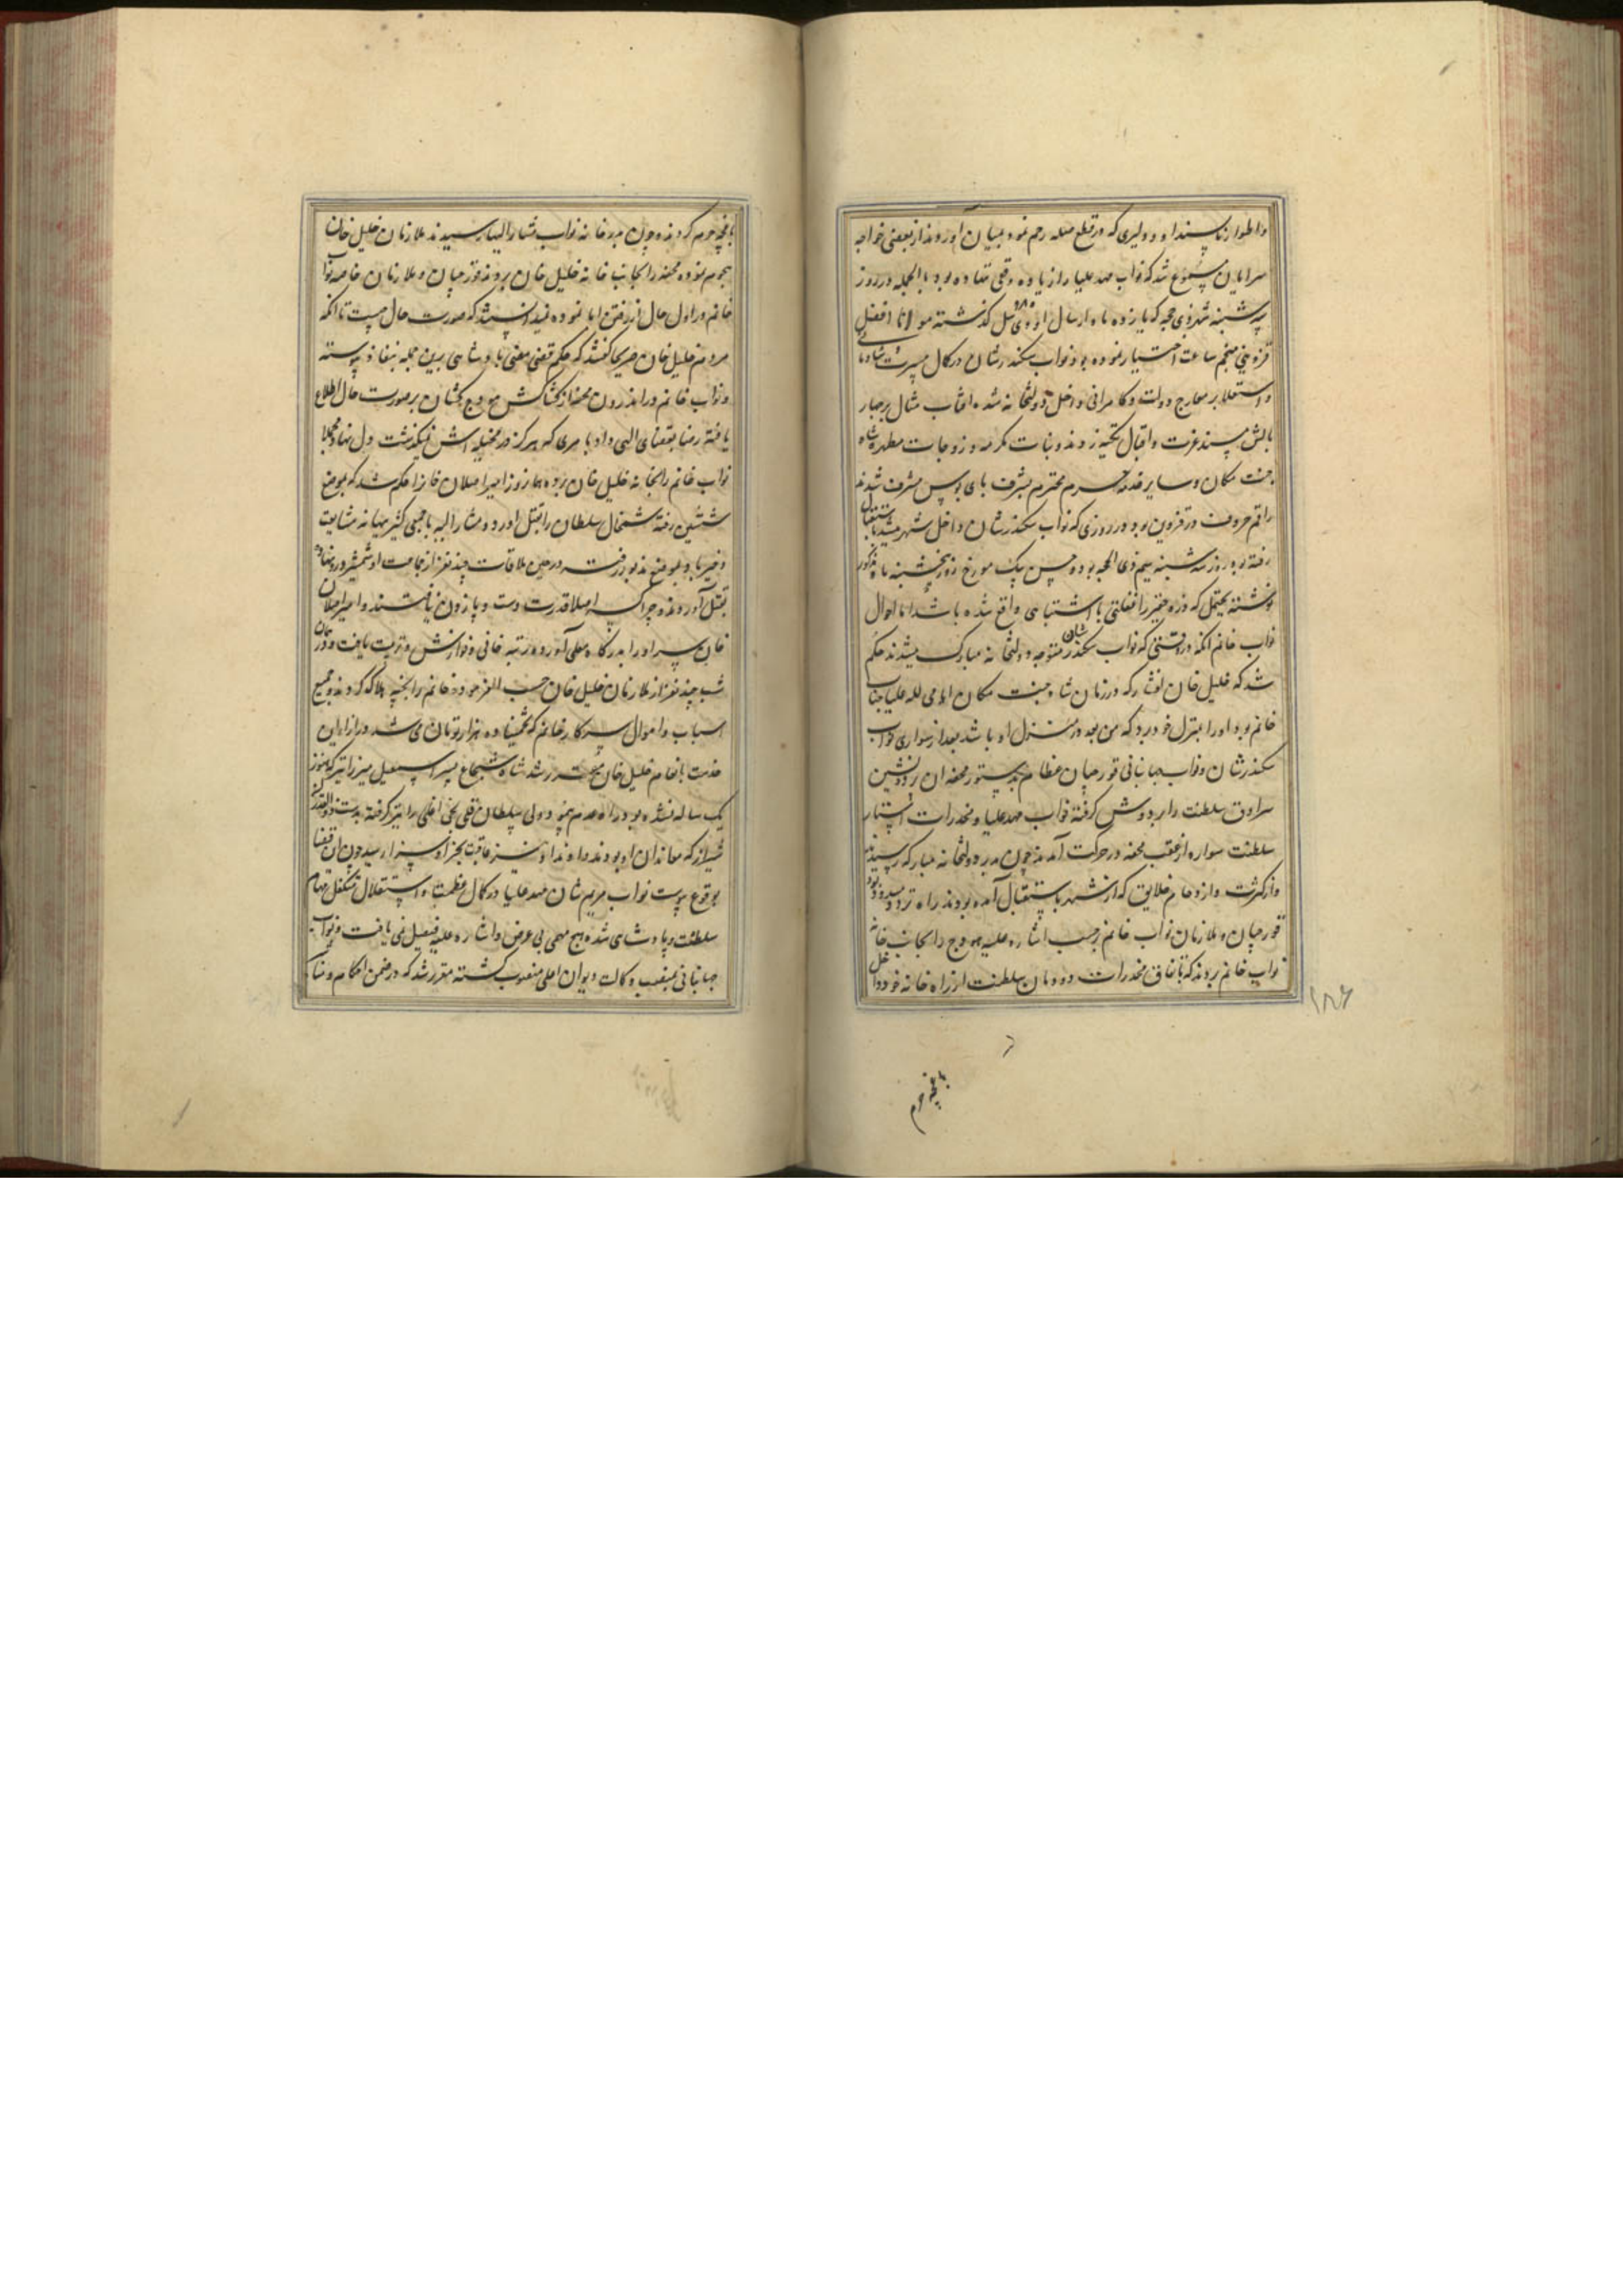 و اطوار ناپسند او و دلیری که در قطع صله رحم نمود بمیان آوردند از بعضی خواجه
سرایان مسموع شد که نواب مهد علیا را زیاده وقعی ننهاده بود بالجمله در روز
سه شنبه ذی حجه که یازده ماه از سال اودئیل گذشته مولانا افضل
قزوینی منجم ساعت اختیار نموده بود نواب سکندرشان در کمال مسرت و شادمانی
و استعلا بر معارج دولت و کامرانی داخل دولتخانه شده آفتاب مثال بر چهار
بالش مسند عزت و اقبال تکیه زدند و بنات مکرمه و زوجات مطهره شاه
جنت مکان و سایر خدمه حرم محترم بشرف پای بوس مشرف شدند
راقم حروف در قزوین بود در روزی که نواب سکندرشان داخل شهر میشد باستقبال
رفته بود روز سه شنبه پنجم ذی الحجه بود و حسن بیک مورخ روز پنجشنبه ماه مذکور
نوشته یحتمل که ذره حقیر را غفلتی یا اشتباهی واقع شده باشد اما احوال
نواب خانم آنکه در وقتی که نواب سکندرشان متوجه دولتخانه مبارک میشدند حکم
شد که خلیل خان افشار که در زمان شاه جنت مکان اسامی لله علیا جناب
خانم بود او را بمنزل خود برد که من بعد در منزل او باشد بعد از سواری نواب
سکندرشان و نواب جهانبانی قورچیان عظام بدستور محفه آن پرده نشین
سرادق سلطنت را بر دوش گرفته نواب مهد علیا و مخدرات استار
سلطنت سواره از عقب محفه در حرکت آمدند چون بدر دولتخانه مبارکه رسیدند
و از کثرت و ازدحام خلایق که از شهر باستقبال آمده بودند راه تردد مسدود بود
قورچیان و ملازمان نواب خانم برحسب اشاره علیه هودج را بجانب خانه
نواب خانم بردند که باتفاق مخدرات دودمان سلطنت از راه خانه خود داخل
باغچه حرم
۱۸۶
باغچه حرم گردند و چون بدر خانه نواب مشار الیها رسیدند ملازمان خلیل خان
هجوم نموده محفه را بجانب خانه خلیل خان بردند قورچیان و ملازمان خاصه نواب
خانم در اول حال از رفتن ابا نموده نمیدانستند که صورت حال چیست تا آنکه
مردم خلیل خان صریحا گفتند که حکم قضی مضی پادشاهی برین جمله بنفاذ پیوسته
و نواب خانم در اندرون محفه از کشاکش هودج کشان بر صورت حال اطلاع
یافته رضا بقضای الهی داد با مری که هرگز در مخیله اش نمیگذشت دل نهاد مجملا
نواب خانم را بخانه خلیل خان برده همان روز امیر اصلان خان را حکم شد که بموضع
رفته شمخال سلطان را بقتل آورد و مشار الیه با جمعی کثیر بهانه مشایعت
بموضع مذبور رفت در حین ملاقات چند نفر از جماعت او شمشیر درو نهاده
بقتل آوردند و چراکسه اصلا قدرت دست و پا زدن نیافتند و امیر اصلان
خان سر او را بدرگاه معلی آورد و رتبه خانی و نوازش و تربیت یافت و در همان
شب چند نفر از ملازمان خلیل خان حسب الفرموده خانم را بخپه هلاک کردند و جمیع
اسباب و اموال سرکار خانم که تخمینا ده هزار تومان می شد در ازاء این
خدمت بانعام خلیل خان مقرر شد شاه شجاع پسر اسمعیل میرزا نیز که هنوز
یک ساله نشده بود راه عدم پیمود و ولی سلطان قلی نخی اغلی را نیز گرفته بدست ذوالقدر
شیراز که معاندان او بودند دادند او نیز عاقبت بجزا و سزا رسید چون آن قضایا
بوقوع پیوست نواب مریم شان مهد علیا در کمال عظمت و استقلال متکفل مهام
سلطنت و پادشاهی شده هیچ مهمی بی عرض و اشاره علیه فیصل نمی یافت و نواب
جهانبانی بمنصب وکالت دیوان اعلی منصوب گشته مقرر شد که در ضمن احکام و مناشیر